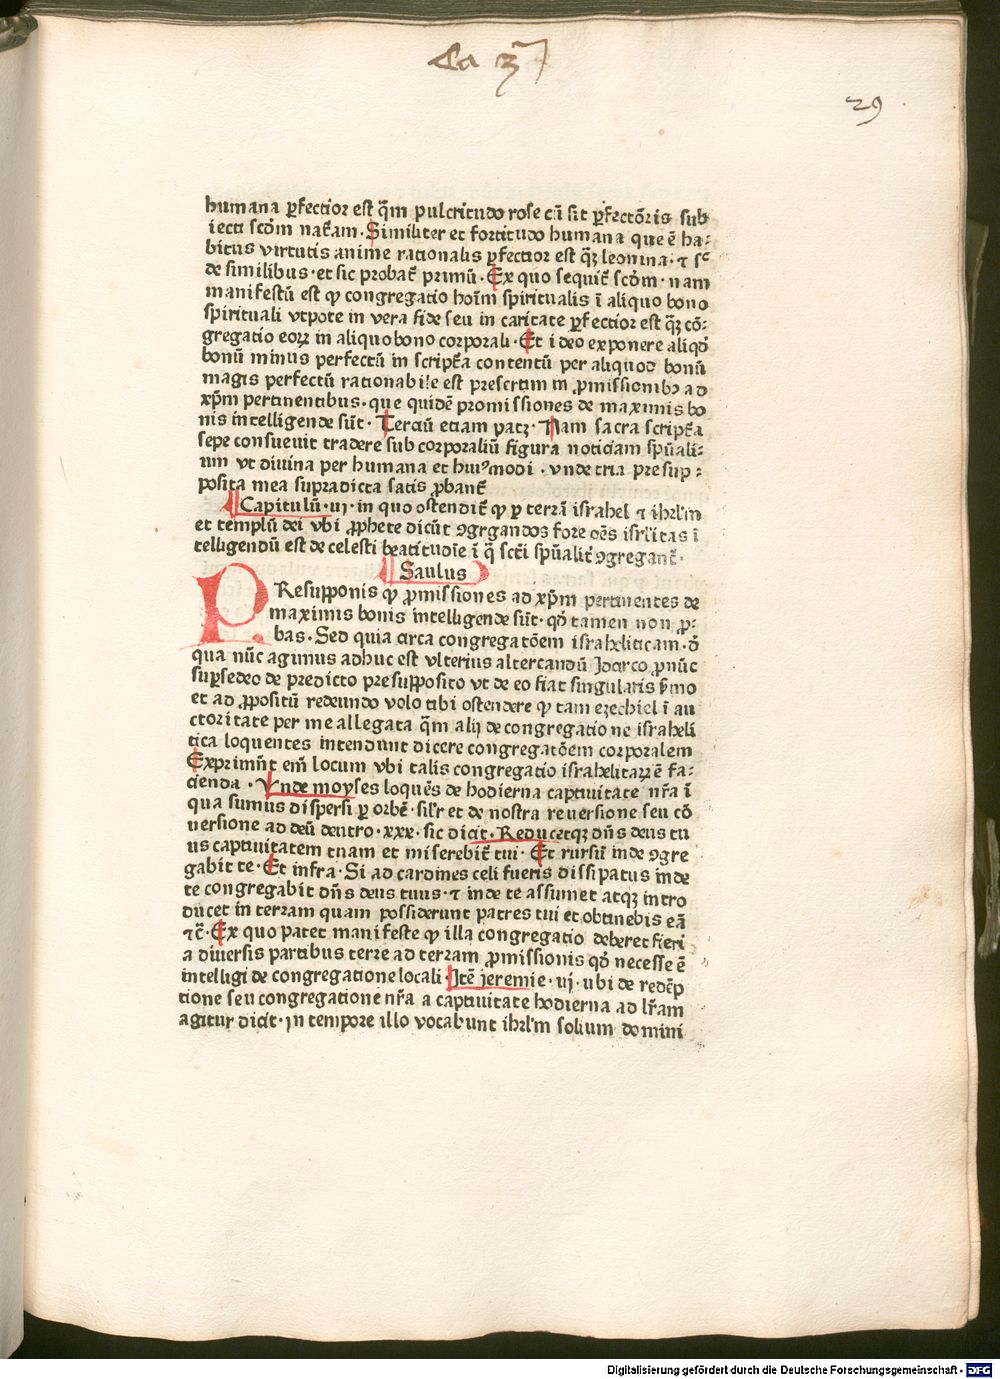 29
humana ꝑfectior est q̄m pulcritudo rose cū sit ꝑfectōris sub
iecti scdm̄ nat̄am. Similiter et fortitudo humana que ē ha⸗
bitus virtutis anime rationalis ꝑfectior est qꝫ̄ leonina. ⁊ sc̄
de similibus. et sic probat̄ primū. Ex quo sequit̄ scdm̄. nam
manifestū est ꝙ congregatio hoīm spiritualis ī aliquo bono
spirituali vtpote in vera fide seu in caritate ꝑfectior est qꝫ̄ cō⸗
gregatio eoꝝ in aliquo bono corporali. Et ideo exponere aliqd̄
bonū minus perfectū in script̄a contentū per aliquod bonū
magis perfectū rationabile est presertim in ꝓmissionibꝰ ad
xp̄m pertinentibus. que quidē promissiones de maximis bo
nis intelligende sūt. Terciū etiam patꝫ. Nam sacra script̄a
sepe consueuit tradere sub corporaliū figura noticiam spūali⸗
um vt diuina per humana et huiꝰmodi. vnde tria presup⸗
posita mea supradicta satis ꝓbant̄
Capitulū. vj. in quo ostendit̄ ꝙ ꝑ terrā israhel ⁊ ihrl̄m
et templū dei vbi ꝓphete dicūt ꝯgrgandos fore oēs isrlitas ī
telligendū est de celesti beatitudīe ī q̄ scti̅ spūalit̄ ꝯgregant̄.
Saulus
PResupponis ꝙ ꝓmissiones ad xp̄m pertinentes de
maximis bonis intelligende sūt. qd̄ tamen non ꝓ⸗
bas. Sed quia circa congregatōem israheliticam. d̄
qua nūc agimus adhuc est vlterius altercandū Idcirco ꝓ nūc
suꝑsedeo de predicto presupposito vt de eo fiat singularis ẜmo
et ad ꝓpositū redeundo volo tibi ostendere ꝙ tam ezechiel ī au
ctoritate per me allegata q̄m alij de congregatione israheli
tica loquentes intendunt dicere congregatōem corporalem
Exprimūt em̄ locum vbi talis congregatio israhelitaꝝ ē fa⸗
cienda. Vnde moyses loquēs de hodierna captiuitate nr̄a ī
qua sumus dispersi ꝑ orbē. silr̄ et de nostra reuersione seu cō
uersione ad deū deutro. xxx. sic dicit. Reducetqꝫ dn̄s deus tu
us captiuitatem tuam et miserebit̄ tui. Et rursū inde ꝯgre
gabit te. Et infra. Si ad cardines celi fueris dissipatus inde
te congregabit dn̄s deus tuus. ⁊ inde te assumet atqꝫ intro
ducet in terram quam possiderunt patres tui et obtinebis eā
⁊c̄. Ex quo patet manifeste ꝙ illa congregatio deberet fieri
a diuersis partibus terre ad terram ꝓmissionis qd̄ necesse ē
intelligi de congregatione locali. Itē jeremie. iij. ubi de redēp
tione seu congregatione nr̄a a captiuitate hodierna ad lr̄am
agitur dicit. in tempore illo vocabunt ihrl̄m solium domini
Digitalisierung gefördert durch die Deutsche Forschungsgemeinschaft - DFG